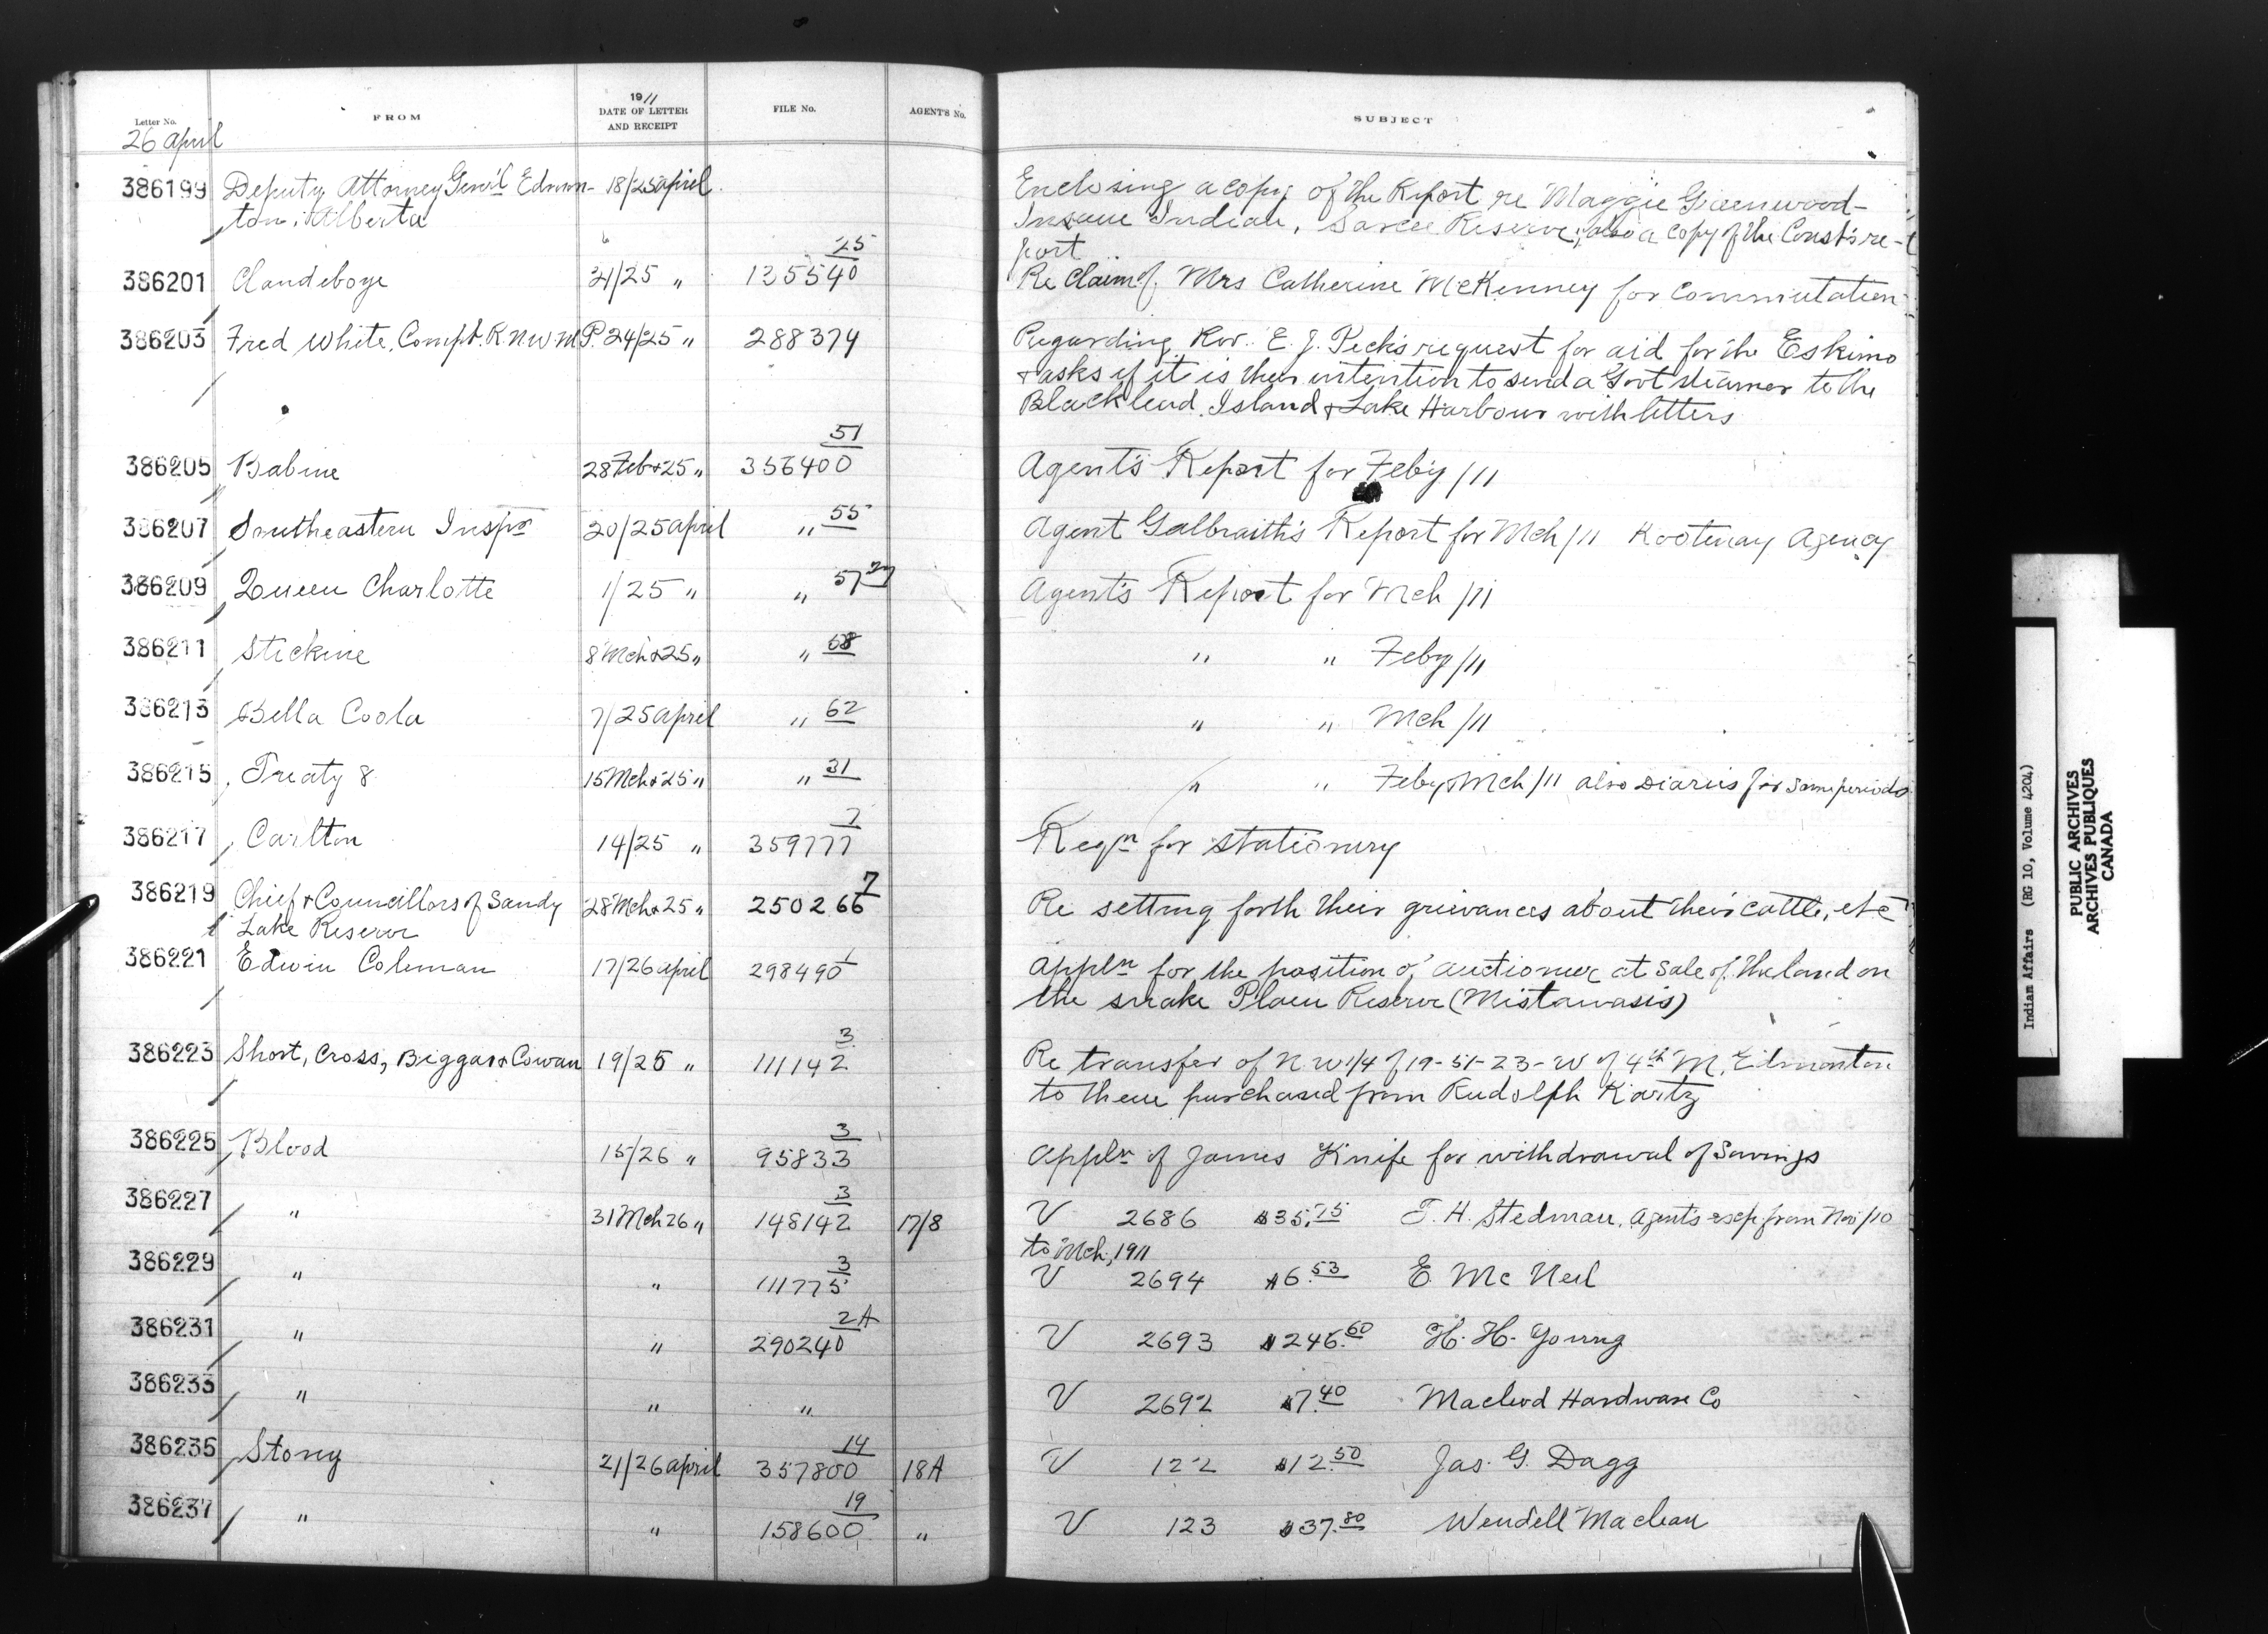 Letter No. FROM 1911 DATE OF LETTER AND RECEIPT FILE No. AGENT'S No. SUBJECT
26 April
386199 Deputy Attorney Gen'l Edmon- 18/25 April Enclosing a copy of the Report re Maggie Greenwood-
ton, Alberta Insane Indian, Sarcee Reserve; also a copy of the Const's re-
port
386201 Clandeboye 21/25 " 135540 25 Re Claim of Mrs Catherine McKenney for commutation
386203 Fred White, Compt. R.N.W.M.P. 24/25 " 288374 Regarding Rev. E. J. Peck's request for aid for the Eskimo
& asks if it is their intention to send a Govt steamer to the
Blacklead Island & Lake Harbour with letters
386205 Babine 28 Feb & 25 " 356400 51 Agent's Report for Feb'y /11
386207 Southeastern Inspr 20/25 April " 55 Agent Galbraith's Report for Mch /11 Kootenay Agency
386209 Queen Charlotte 1/25 " " 57 Agent's Report for Mch /11
386211 Stickine 8 Mch & 25 " " 58 " " Feby /11
386213 Bella Coola 7/25 April " 62 " " Mch /11
386215 Treaty 8 15 Mch & 25 " " 31 " " Feby & Mch /11 also Diaries for same periods
386217 Carlton 14/25 " 359777 7 Reqn for stationery
386219 Chief & Councillors of Sandy 28 Mch & 25 " 250266 7 Re setting forth their grievances about their cattle, etc
Lake Reserve
386221 Edwin Coleman 17/26 April 298490 1 Appln for the position of auctioneer at sale of the land on
the snake Plain Reserve (Mistawasis)
386223 Short, Cross, Biggar & Cowan 19/25 " 111142 3 Re transfer of N.W 1/4 of 19-51-23-W of 4th M, Edmonton
to them purchased from Rudolph Kartz
386225 Blood 15/26 " 95833 3 Appln of James Knife for withdrawal of Savings
386227 " 31 Mch 26 " 148142 3 17/8 V 2686 $35.75 T. H. Stedman, Agent's exp from Nov /10
to Mch, 1911
386229 " " 111775 3 V 2694 $6.53 E. McNeil
386231 " " 290240 2A V 2693 $246.60 H. H. Young
386233 " " " V 2692 $7.40 Macleod Hardware Co
386235 Stony 21/26 April 357800 14 18A V 122 $12.50 Jas. G. Dagg
386237 " " 158600 19 " V 123 $37.80 Wendell Maclean
Indian Affairs (RG 10, Volume 4204)
PUBLIC ARCHIVES
ARCHIVES PUBLIQUES
CANADA